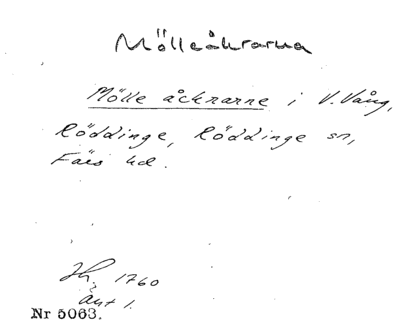 Mölleåkrarna
Mölle åckrarne i V. Vång,
Röddinge, Röddinge sn,
Färs hd.
1760
Akt 1.
Nr 5063.